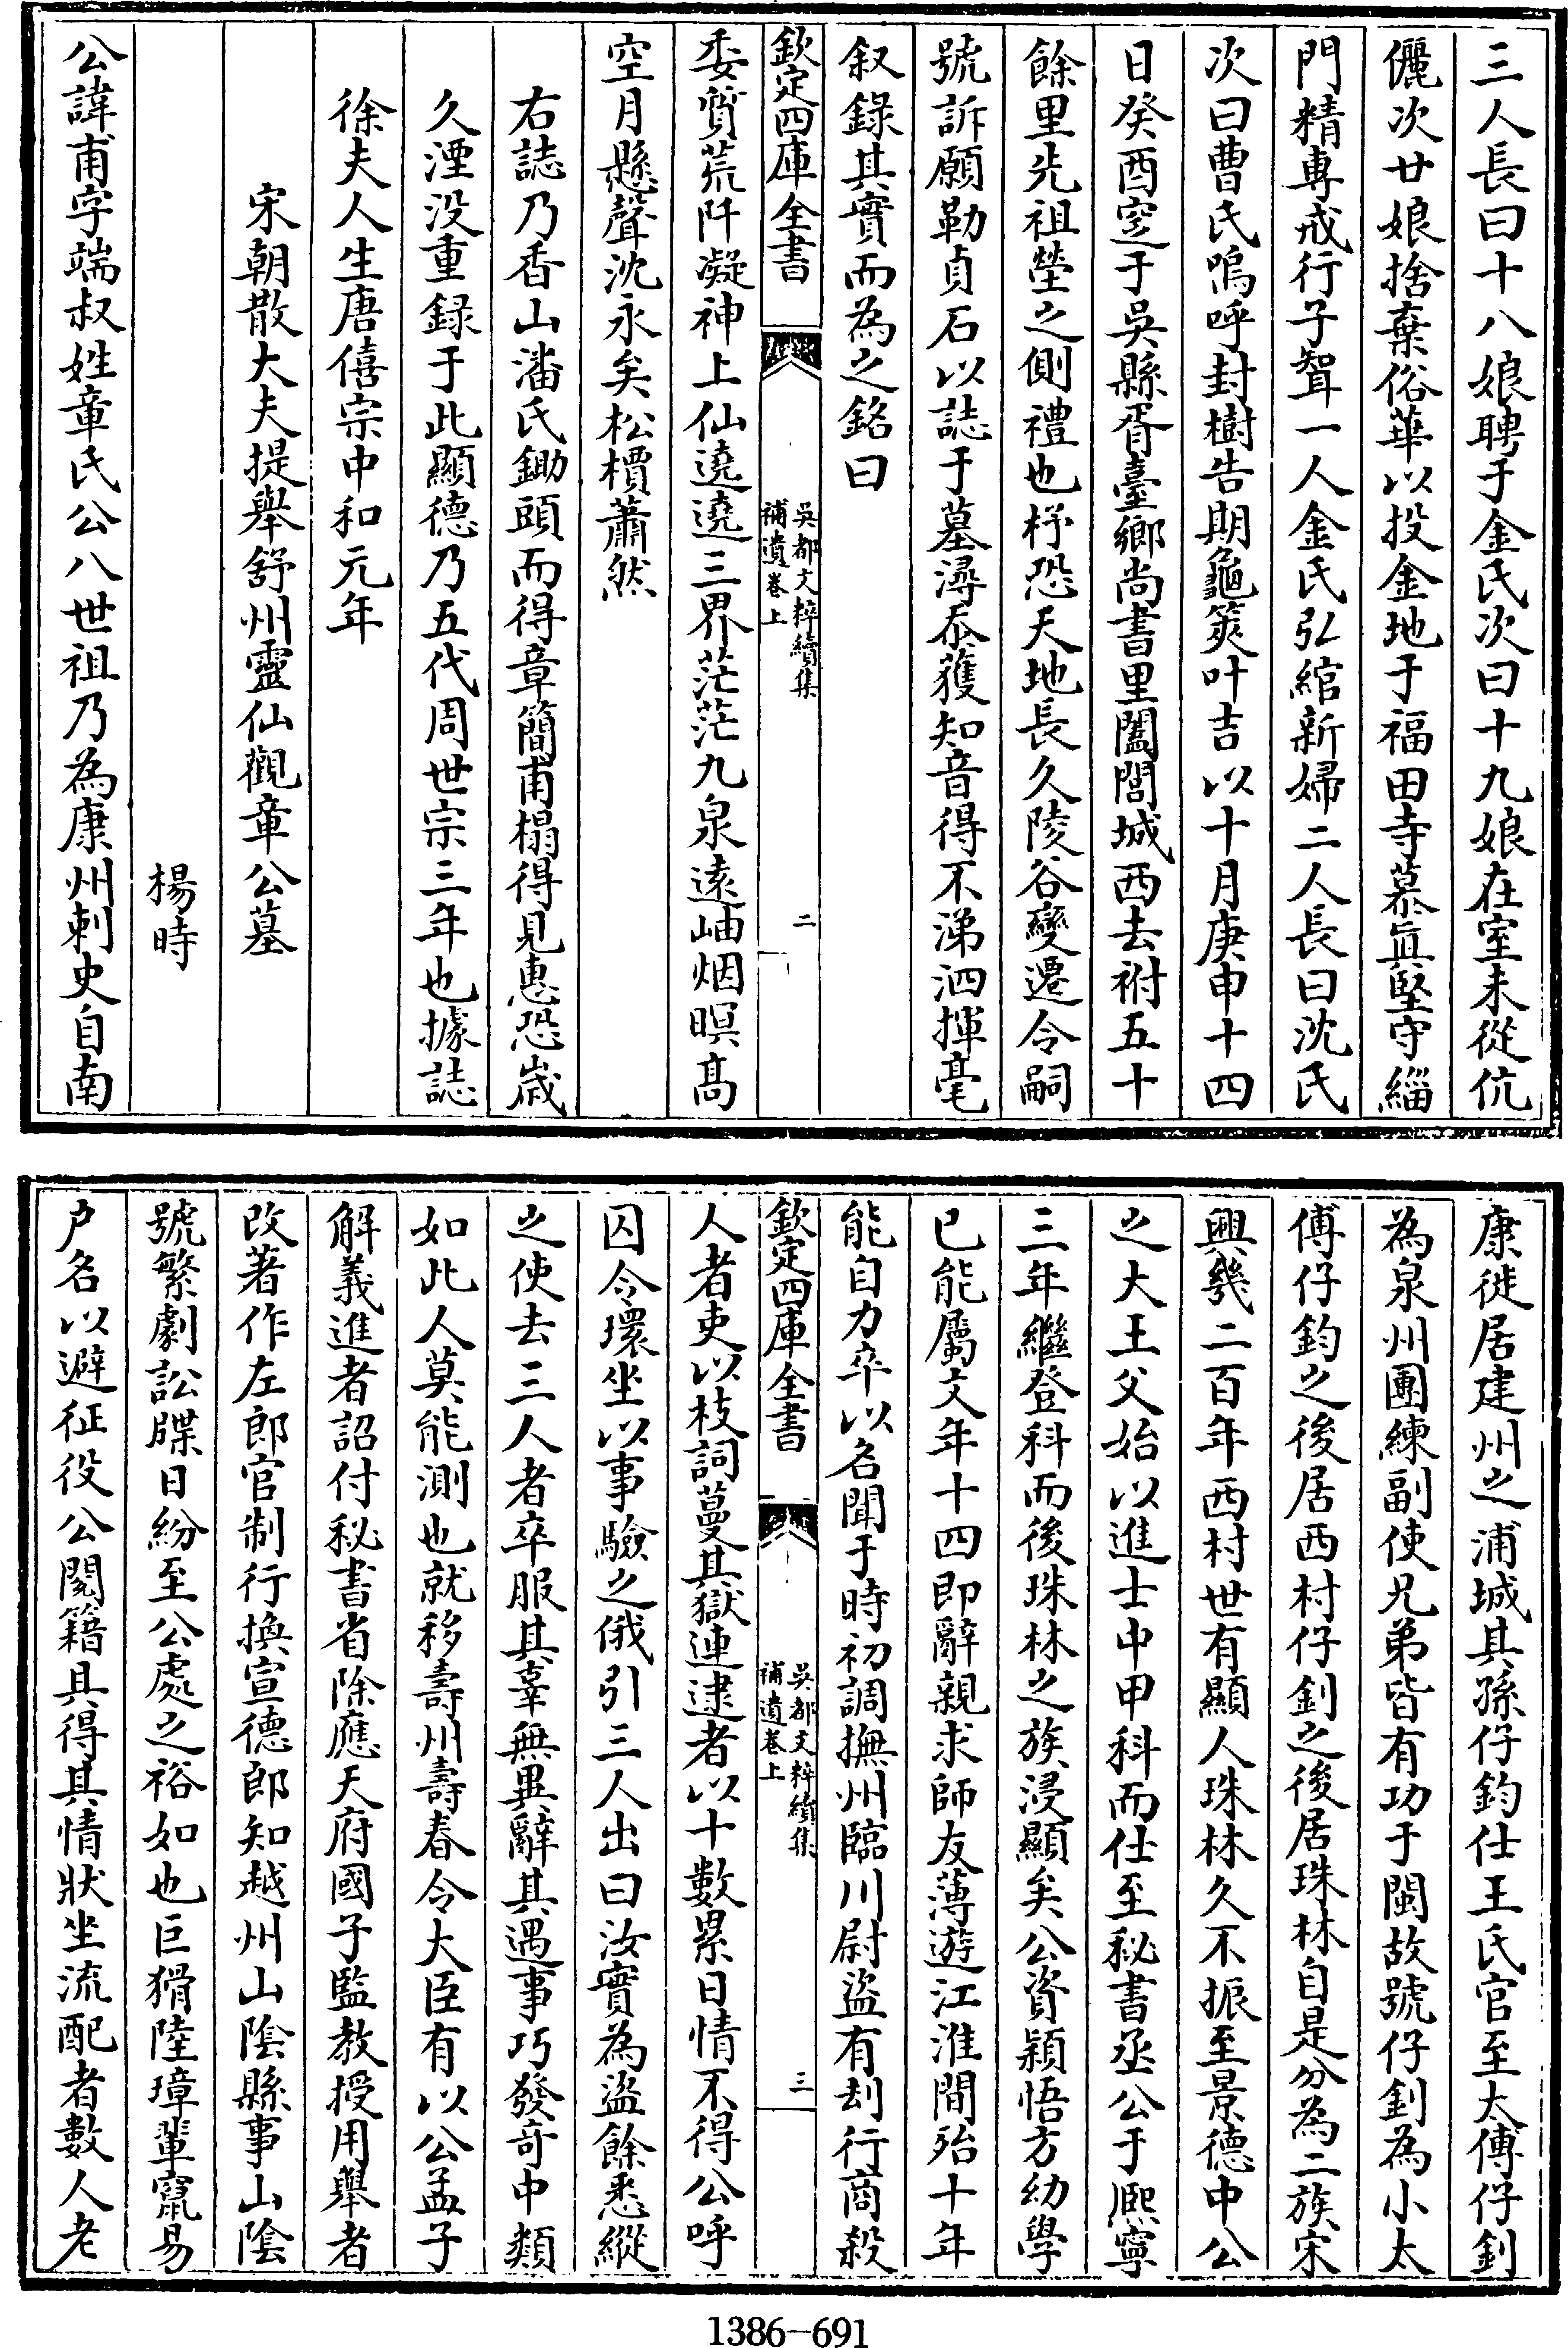 三人長曰十八娘聘于金氏次曰十九娘在室未從伉
儷次廿娘捨棄俗華以投金地于福田寺慕眞堅守緇
門精專戒行子聟一人金氏弘綰新婦二人長曰沈氏
次曰曹氏嗚呼封樹告期龜筴叶吉以十月庚申十四
日癸酉窆于吳縣胥臺鄉尚書里闔閭城西去祔五十
餘里先祖塋之側禮也杼恐天地長久陵谷變遷令嗣
號訴願勒貞石以誌于墓潯忝獲知音得不涕泗揮毫
叙錄其實而為之銘曰
欽定四庫全書
吳都文粹續集
補遺卷上
二
委質荒阡凝神上仙遶遶三界茫茫九泉遠岫烟暝髙
空月懸聲沈永矣松檟蕭然
右誌乃香山潘氏鋤頭而得章簡甫榻得見惠恐歲
久湮没重録于此顯德乃五代周世宗三年也據誌
徐夫人生唐僖宗中和元年
宋朝散大夫提舉舒州靈仙觀章公墓
楊時
公諱甫字端叔姓章氏公八世祖乃為康州刺史自南
康徙居建州之浦城其孫仔鈞仕王氏官至太傅仔釗
為泉州團練副使兄弟皆有功于閩故號仔釗為小太
傅仔鈞之後居西村仔釗之後居珠林自是分為二族宋
興幾二百年西村世有顯人珠林久不振至景德中公
之大王父始以進士中甲科而仕至秘書丞公于熈寧
三年繼登科而後珠林之族浸顯矣公資穎悟方幼學
已能屬文年十四即辭親求師友薄遊江淮間殆十年
能自力卒以名聞于時初調撫州臨川尉盜有刦行商殺
欽定四庫全書
吳都文粹續集
補遺卷上
三
人者吏以枝詞蔓其獄連逮者以十數累日情不得公呼
囚令環坐以事驗之俄引三人出曰汝實為盜餘悉縱
之使去三人者卒服其辜無異辭其遇事巧發奇中類
如此人莫能測也就移壽州壽春令大臣有以公孟子
解義進者詔付秘書省除應天府國子監教授用舉者
改著作左郎官制行換宣德郎知越州山隂縣事山隂
號繁劇訟牒日紛至公處之裕如也巨猾陸璋輩竄易
户名以避征役公閱籍具得其情狀坐流配者數人老
1386-691